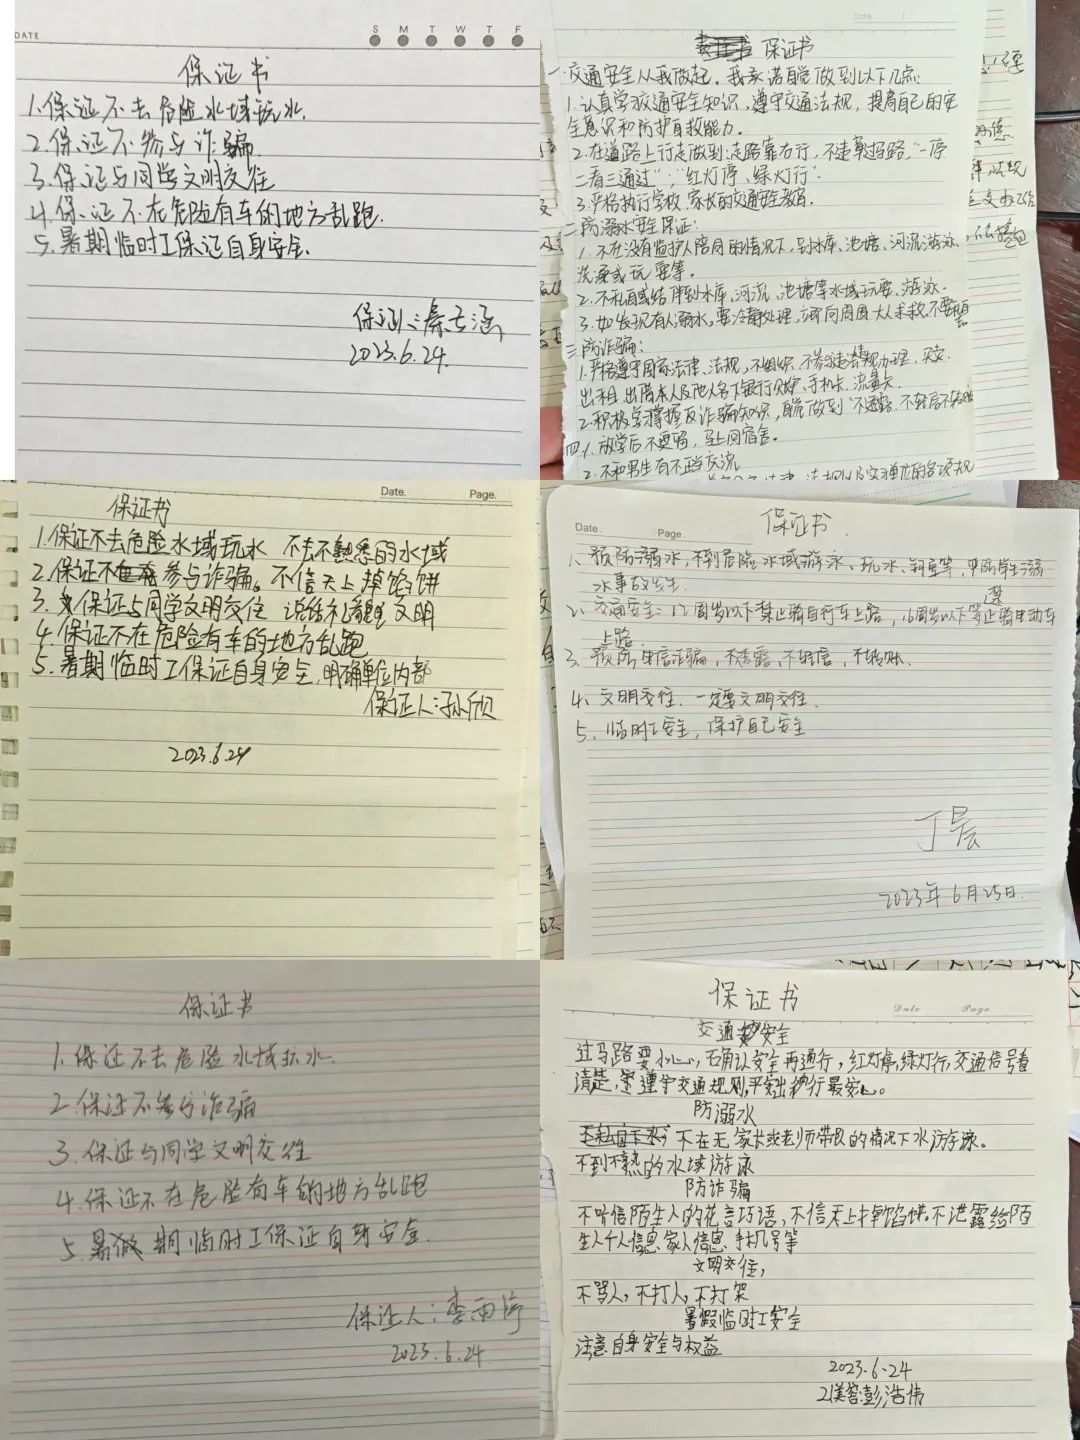 DATE
S M T W T F
保证书
1.保证不去危险水域玩水.
2.保证不参与诈骗.
3.保证与同学文明交往
4.保证不在危险有车的地方乱跑.
5.暑期临时工保证自身安全.
保证人:
2023.6.24.
Date.
保证书
一.交通安全从我做起.我承诺自觉做到以下几点:
1.认真学交通安全知识,遵守交通法规,提高自己的安
全意识和防护自救能力.
2.在道路上行走做到:走路靠右行,不违章招路."一停
二看三通过";"红灯停,绿灯行".
3.严格执行学校、家长的交通安全教育.
二防溺水安全保证:
1.不在没有监护人陪同的情况下,到水库、池塘、河流游泳、
洗澡或玩耍等.
2.不私自或结伴到水库、河流、池塘等水域玩耍、游泳.
3.如发现有人溺水,要冷静处理,立即向周围大人求救,不要
三防诈骗:
1.严格遵守国家法律、法规,不组织、不参与违法违规办理、买卖、
出租、出借本人及他人名下银行账户、手机卡、流量卡.
2.积极学习掌握反诈骗知识,自觉做到"不透露、不轻信、不转账
四.1.放学后不要留,马上回宿舍.
2.不和男生有不正当交流
Date. Page.
保证书
1.保证不去危险水域玩水 不去不熟悉的水域
2.保证不参与诈骗。不信天上掉馅饼
3.保证与同学文明交往 说话礼貌 文明
4.保证不在危险有车的地方乱跑
5.暑期临时工保证自身安全,明确单位内部
保证人:孙欣
2023.6.24
Date. Page.
保证书.
1、预防溺水,不到危险水域游泳、玩水、钓鱼等,严防学生溺
水事故发生.
2、交通安全:12周岁以下禁止骑自行车上路,16周岁以下禁止骑电动车
上路.
3、预防电信诈骗,不透露、不轻信、不转账.
4、文明交往、一定要文明交往.
5、临时工安全,保护自己安全
丁晨
2023年6月25日.
保证书
1.保证不去危险水域玩水.
2.保证不参与诈骗
3.保证与同学文明交往
4.保证不在危险有车的地方乱跑
5.暑期临时工保证自身安全.
保证人:李雨婷
2023.6.24
保证书
Date Page
交通安全
过马路要小心,右确认安全再通行,红灯停,绿灯行,交通信号看
清楚,遵守交通规则,平安出行最安心。
防溺水
不在无家长或老师带领的情况下水游泳。
不到不熟的水域游泳
防诈骗
不听信陌生人的花言巧语,不信天上掉馅饼.不泄露给陌
生人个人信息、家人信息、手机号等
文明交往,
不骂人,不打人,不打架
暑假临时工安全
注意自身安全与权益
2023.6.24
彭浩伟